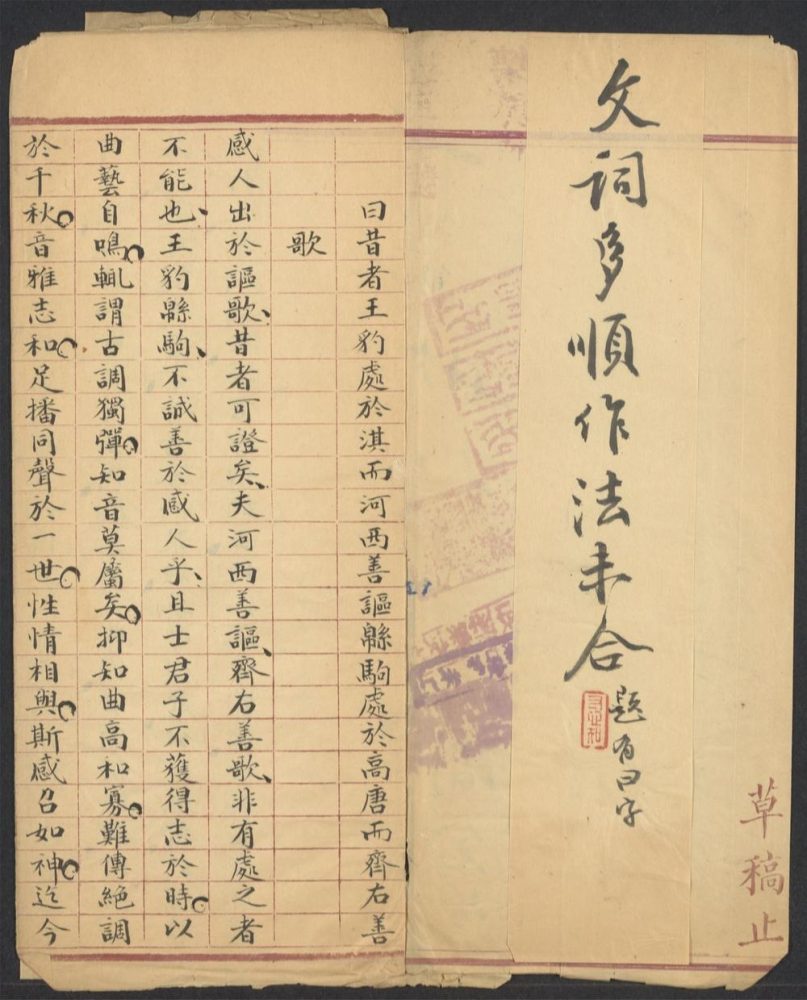 草稿止
文詞多順作法未合
題有曰字
曰昔者王豹處於淇而河西善謳緜駒處於高唐而齊右善
歌
感人出於謳歌、昔者可證矣、夫河西善謳、齊右善歌、非有處之者
不能也、王豹緜駒、不誠善於感人乎、且士君子不獲得志於時。以
曲藝自鳴。輒謂古調獨彈。知音莫屬矣。抑知曲高和寡。難傳絕調
於千秋。音雅志和。足播同聲於一世。性情相與。斯感召如神。迄今